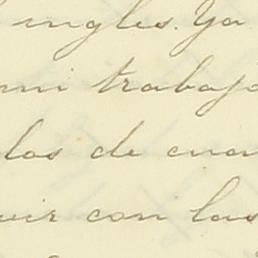 ingles. Ya
mi trabajo
las de cua
vir con las